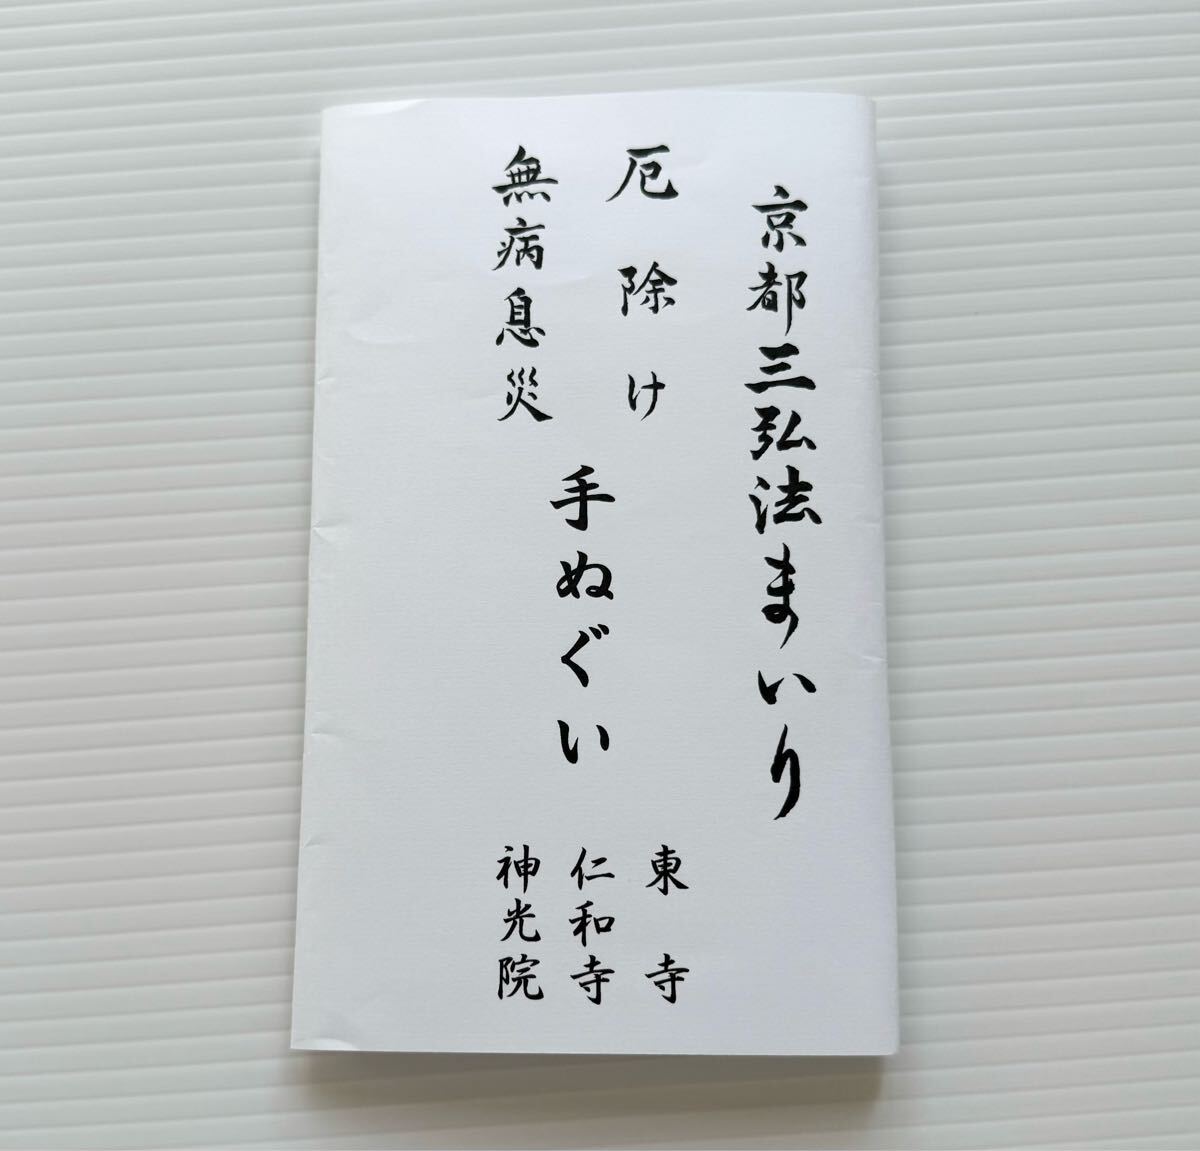 京都三弘法まいり
厄除け
無病息災
手ぬぐい
東寺
仁和寺
神光院